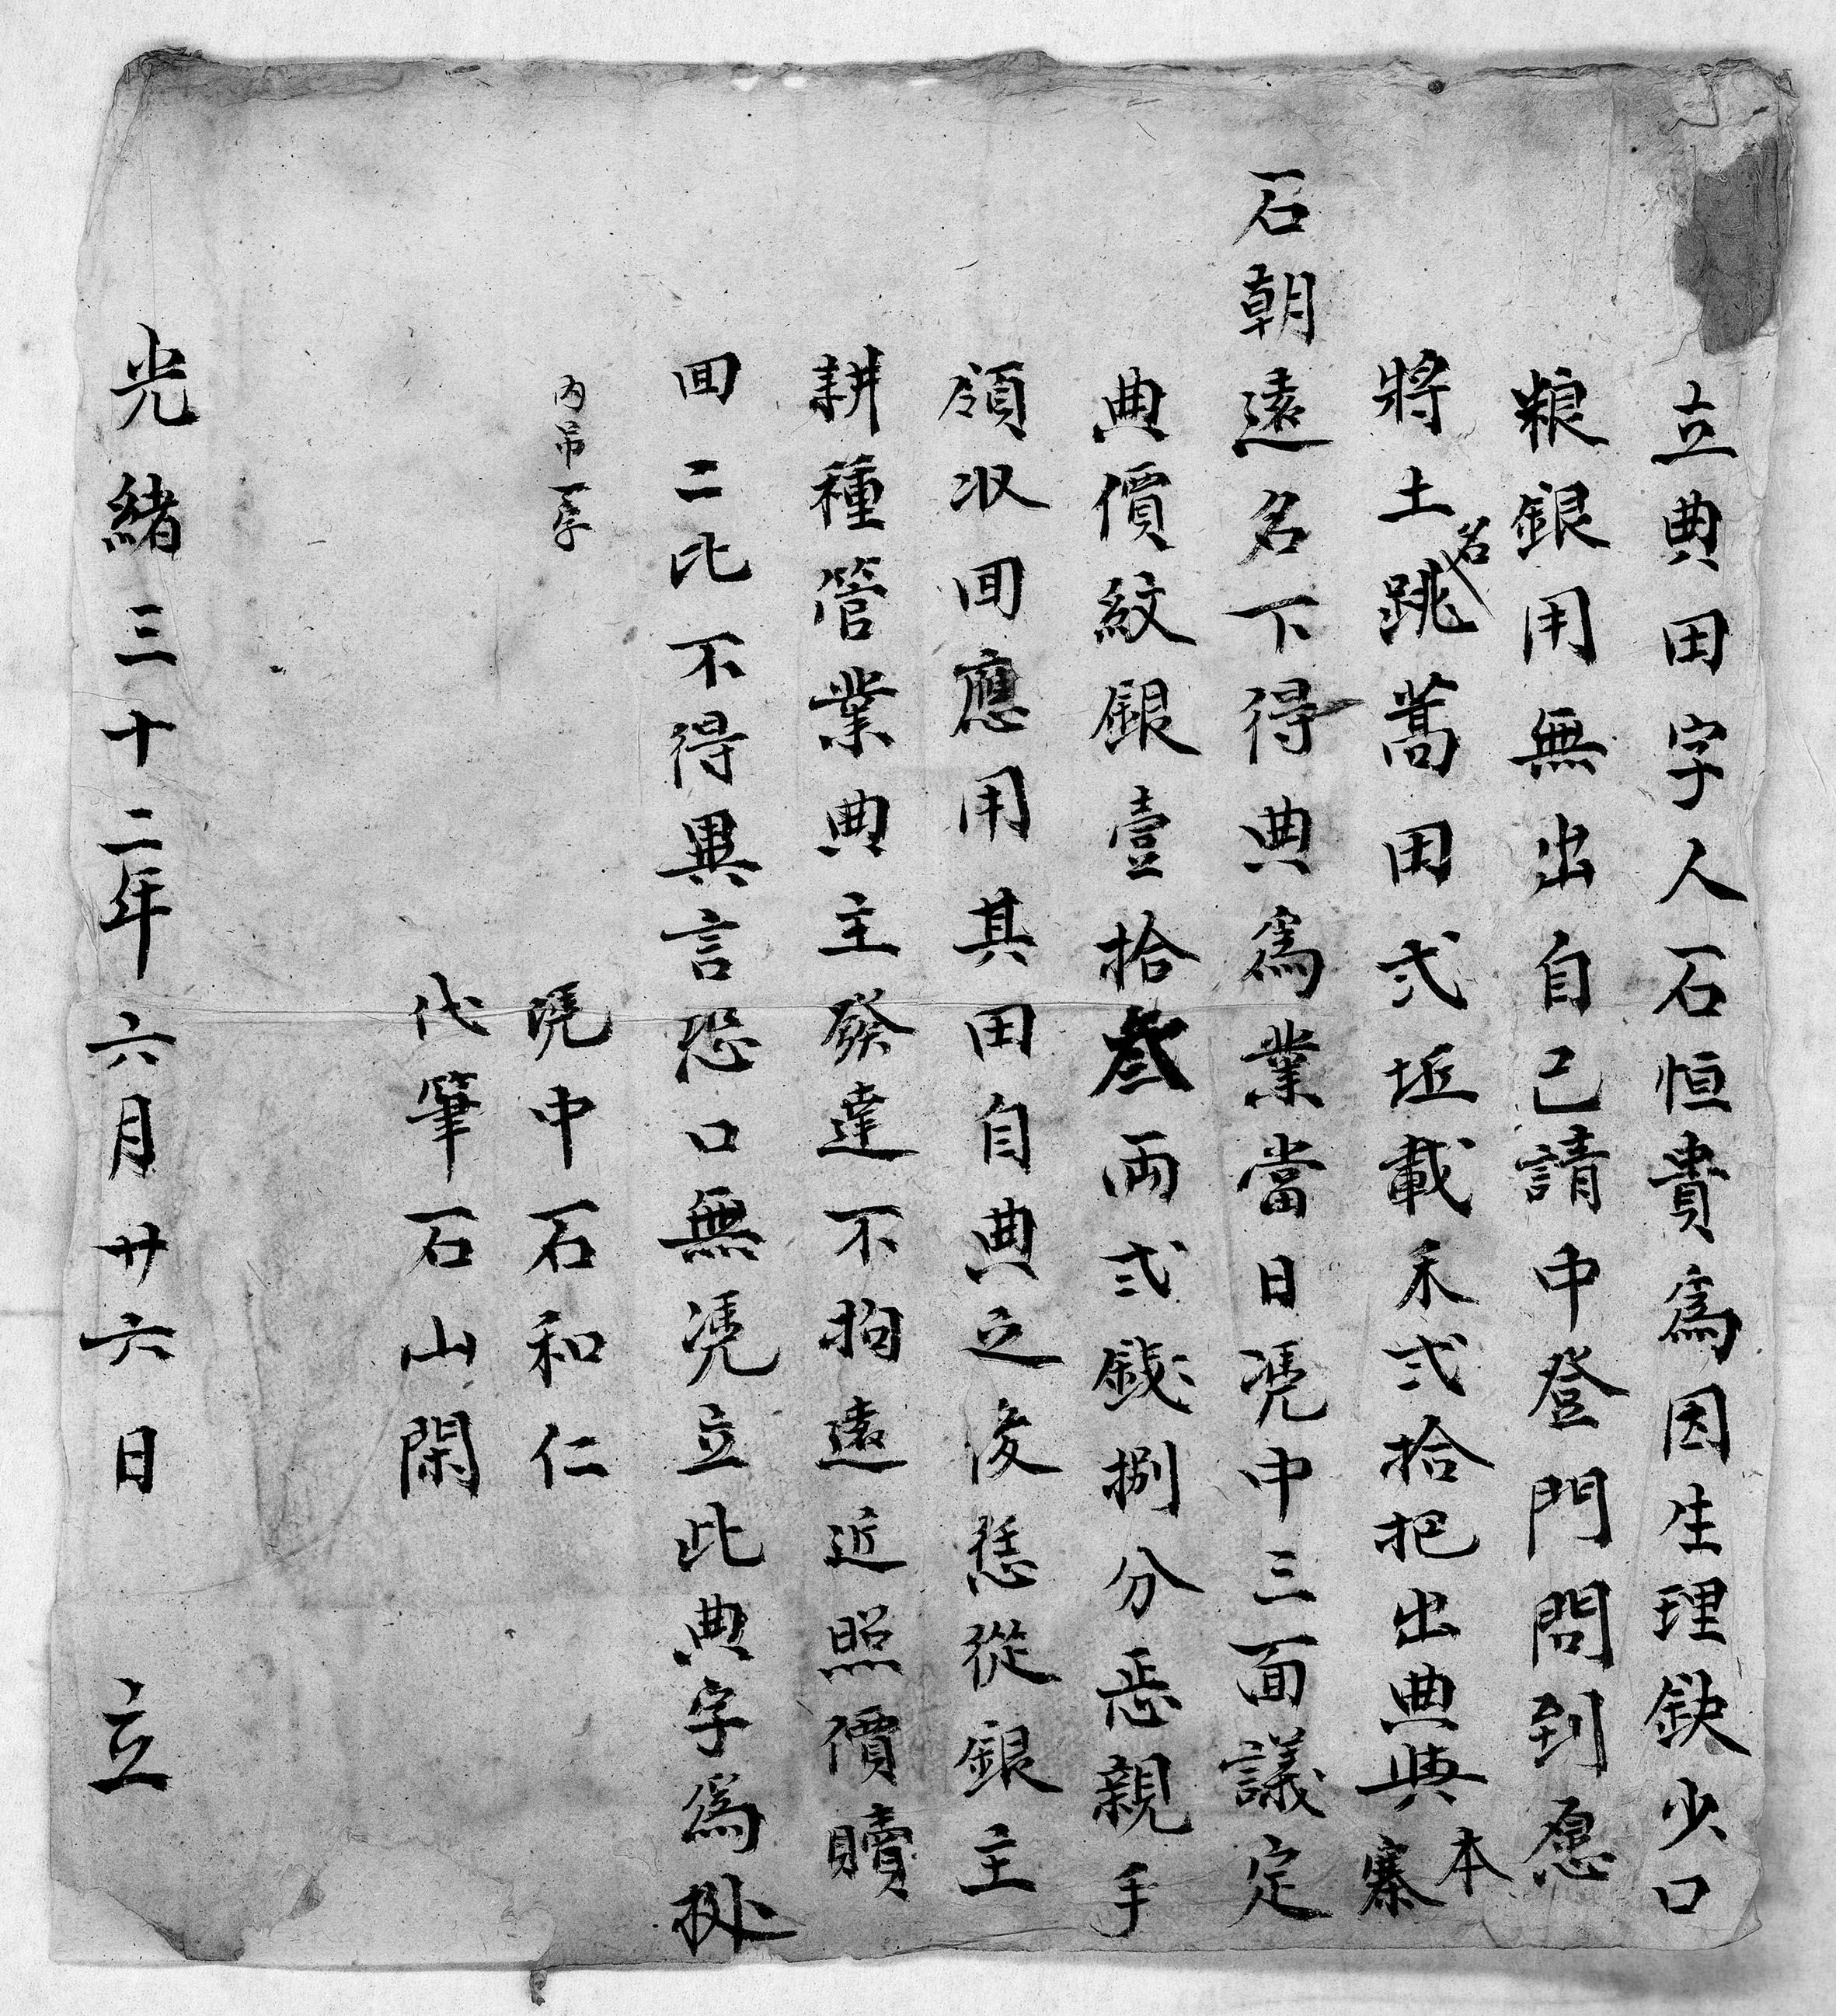 立典田字人石恒貴爲因生理缺少口
粮銀用無出自己請中登門問到愿
將土名跳蒿田弍坵載禾弍拾把出典與本寨
石朝遠名下得典爲業當日凴中三面議定
典價紋銀壹拾叄両弍錢捌分恁親手
領收囬應用其田自典之後恁從銀主
耕種管業典主發達不拘遠近照價贖
囬二比不得異言恐口無凴立此典字爲㨿
内吊一字
凴中石和仁
代筆石山閑
光緒三十二年六月廿六日 立